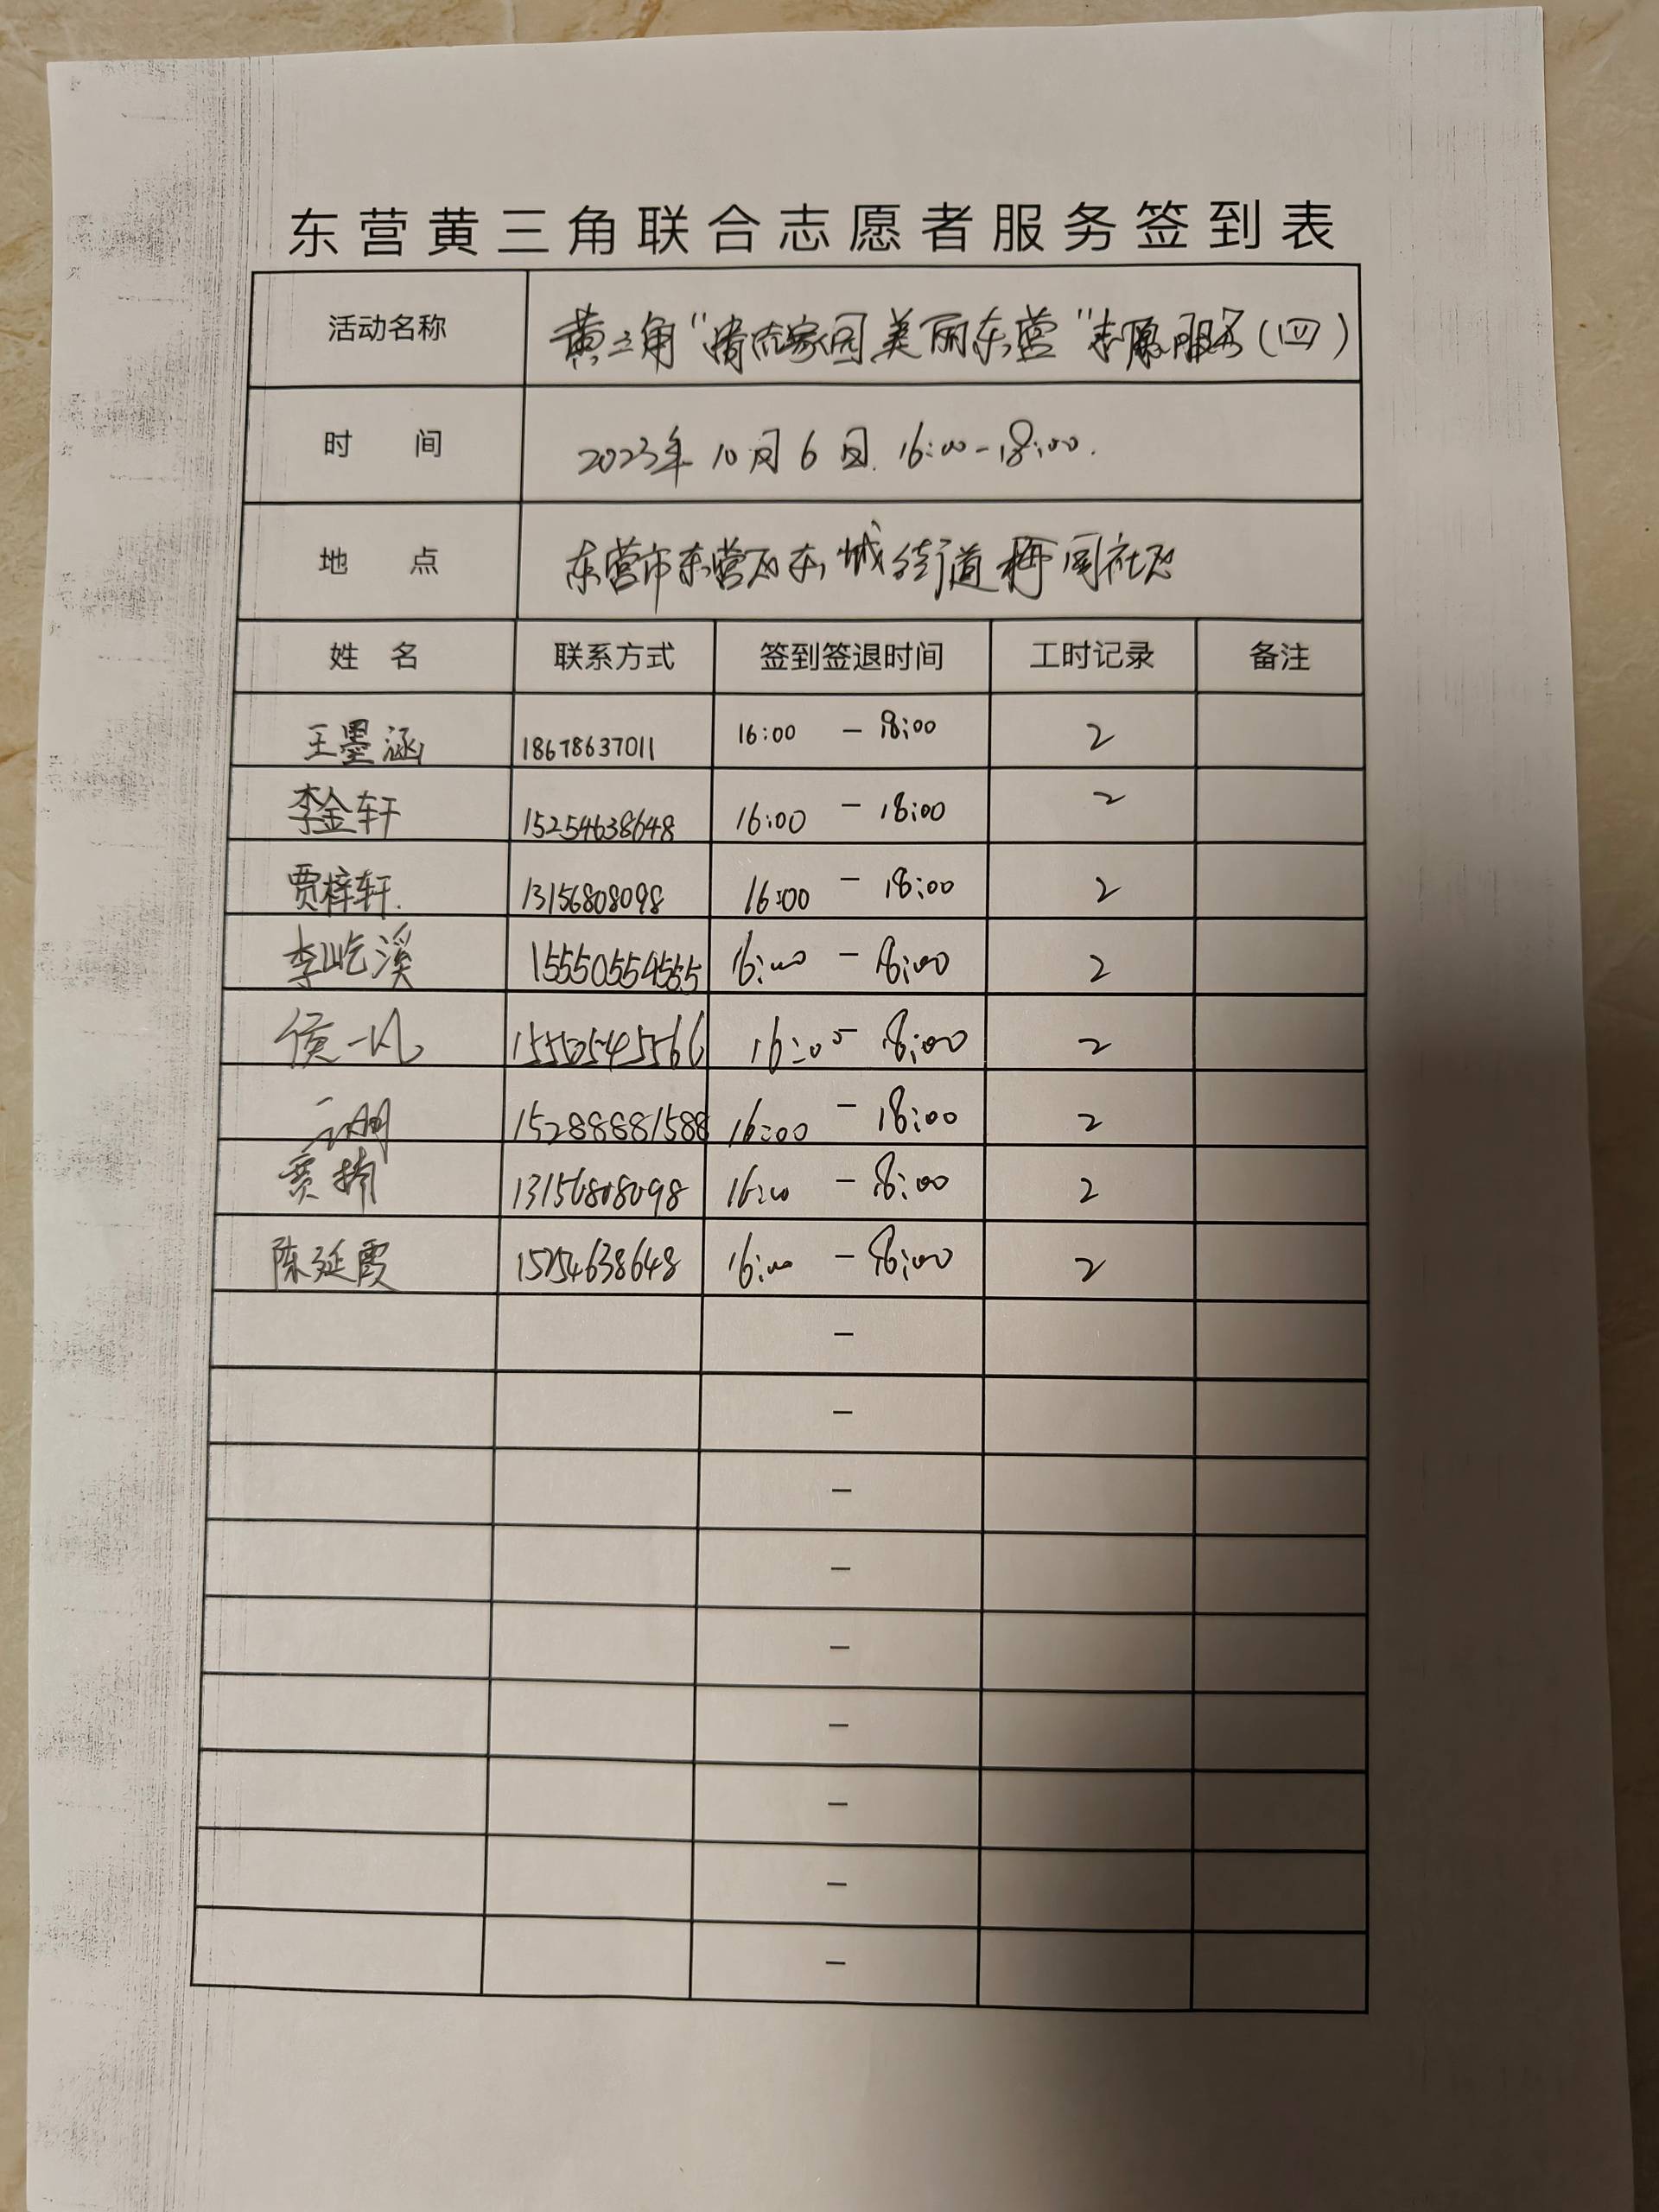 东营黄三角联合志愿者服务签到表
活动名称 黄三角“清洁家园 美丽东营”志愿服务(四)
时 间 2023年10月6日 16:00-18:00.
地 点 东营市东营区东城街道梅园社区
姓 名 联系方式 签到签退时间 工时记录 备注
王墨涵 18678637011 16:00 - 18:00 2
李金轩 15254638648 16:00 - 18:00 2
贾梓轩 13156808098 16:00 - 18:00 2
李屹溪 15550554555 16:00 - 18:00 2
侯一凡 15550545566 16:00 - 18:00 2
15288881588 16:00 - 18:00 2
13156808098 16:00 - 18:00 2
陈延霞 15254638648 16:00 - 18:00 2
-
-
-
-
-
-
-
-
-